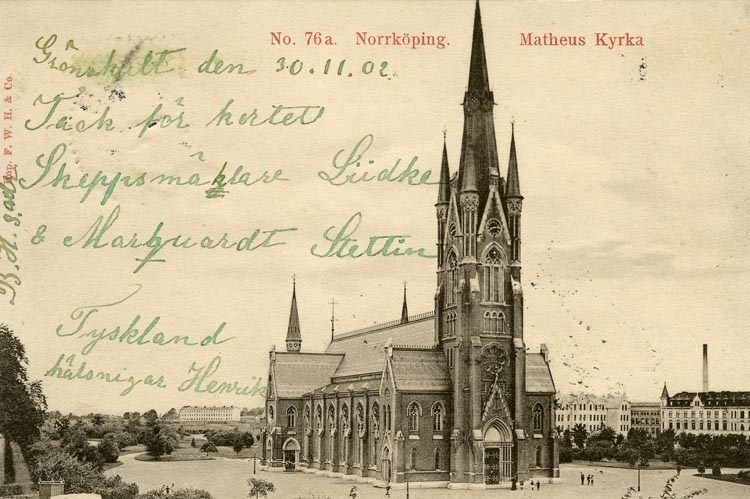 No. 76a. Norrköping. Matheus Kyrka
Grönskult den 30.11.02
Tack för kortet
Skeppsmäklare Lüdke
& Marquardt Stettin
Tyskland
hälsnigar Henrik
Imp. F. W. H. & Co.